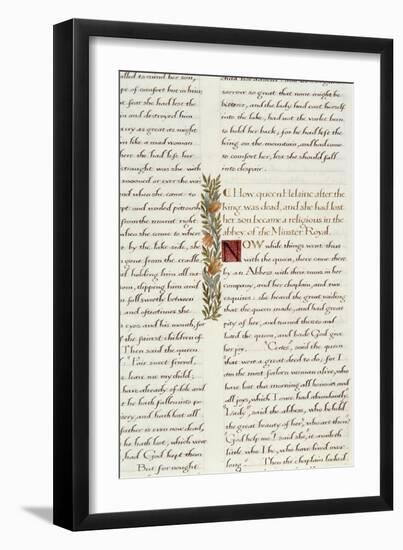 alled to mind her son,
pe of comfort but in him;
at fear she had lost the
n and destroyed him
rry as great as might
m like a mad woman
here she had left her
straught was she with
swooned or ever she
nd when she came to
pt and
from the mount right
when she came to where
by the lake-side, she
gone from the cradle,
d holding him all na-
om, clipping him and
n full sweetly between
and oftentimes she
s eyes and his mouth, for
f the fairest children of
Then said the queen
"Fair sweet friend,
e, leave me my child;
have already of dole and
t he hath fallen into po-
ery, and hath lost all
father is even now dead,
he hath lost, which were
had God kept them
But for nought
sorrow so great that none might be
bitterer, and the lady had cast herself
into the lake, had not the varlet been
to hold her back; for he had left the king
lying on the mountain, and had come
to comfort her, lest she should fall
into despair.
How queen Helaine after the
king was dead, and she had lost
her son became a religious in the
abbey of the Minster Royal.
NOW while things went thus
with the queen, there came there
by an Abbess with three nuns in her
company, and her chaplain, and two
esquires: she heard the great wailing
that the queen made, and had great
pity of her, and turned thereto and
hard the queen, and bade God give
her joy. "Certes," said the queen
"that were a great deed to do; for I
am the most forlorn woman alive, who
have lost this morning all honours and
all joys, which I once had abundantly.
"Lady", said the abbess, who beheld
the great beauty of her, "who art thou?"
"God help me" said she, "it
little who I be, who have lived over
long." Then the chaplain looked